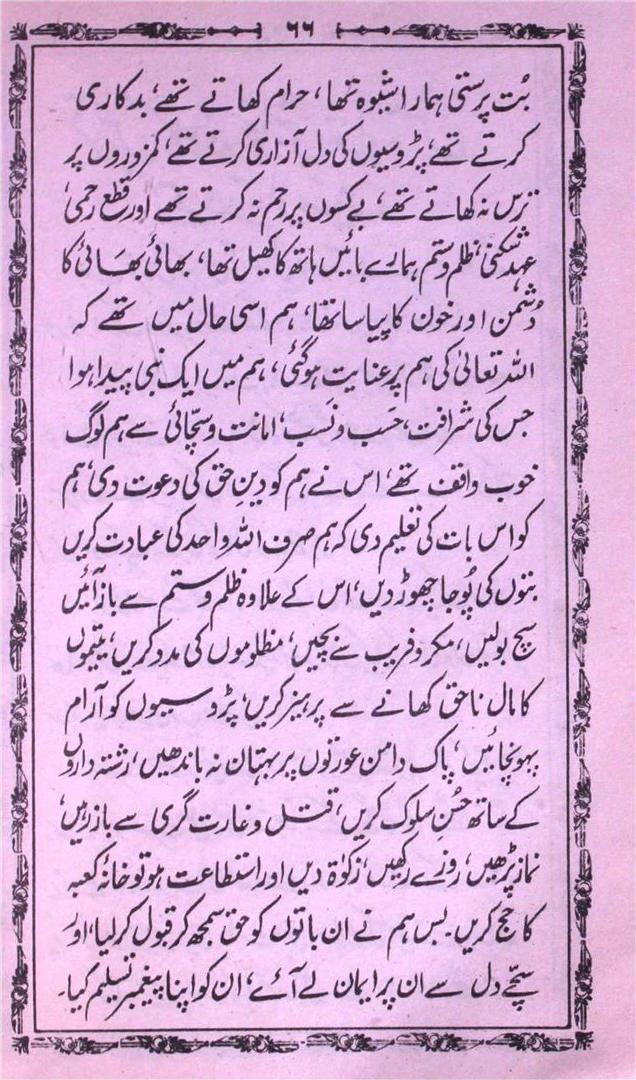 ۶۶
بُت پرستی ہمارا شیوہ تھا، حرام کھاتے تھے، بدکاری
کرتے تھے، پڑوسیوں کی دل آزاری کرتے تھے، کمزوروں پر
ترس نہ کھاتے تھے، بے کسوں پر رحم نہ کرتے تھے اور قطع رحمی،
عہد شکنی، ظلم و ستم ہمارے بائیں ہاتھ کا کھیل تھا، بھائی بھائی کا
دُشمن اور خون کا پیاسا تھا، ہم اسی حال میں تھے کہ
اللہ تعالیٰ کی ہم پر عنایت ہوگئی، ہم میں ایک نبی پیدا ہوا
جس کی شرافت، حَسَب و نَسَب، امانت و سچّائی سے ہم لوگ
خوب واقف تھے، اس نے ہم کو دینِ حق کی دعوت دی، ہم
کو اس بات کی تعلیم دی کہ ہم صرف اللہ واحد کی عبادت کریں
بتوں کی پُوجا چھوڑ دیں، اس کے علاوہ ظلم و ستم سے باز آئیں
سچ بولیں، مکر و فریب سے بچیں، مظلوموں کی مدد کریں، یتیموں
کا مال ناحق کھانے سے پرہیز کریں، پڑوسیوں کو آرام
پہونچائیں، پاک دامن عورتوں پر بہتان نہ باندھیں، رشتہ داروں
کے ساتھ حُسنِ سلوک کریں، قتل و غارت گری سے باز رہیں،
نماز پڑھیں، روزے رکھیں، زکوٰۃ دیں اور استطاعت ہو تو خانۂ کعبہ
کا حج کریں۔ بس ہم نے ان باتوں کو حق سمجھ کر قبول کرلیا، اور
سچّے دل سے ان پر ایمان لے آئے، ان کو اپنا پیغمبر تسلیم کیا۔